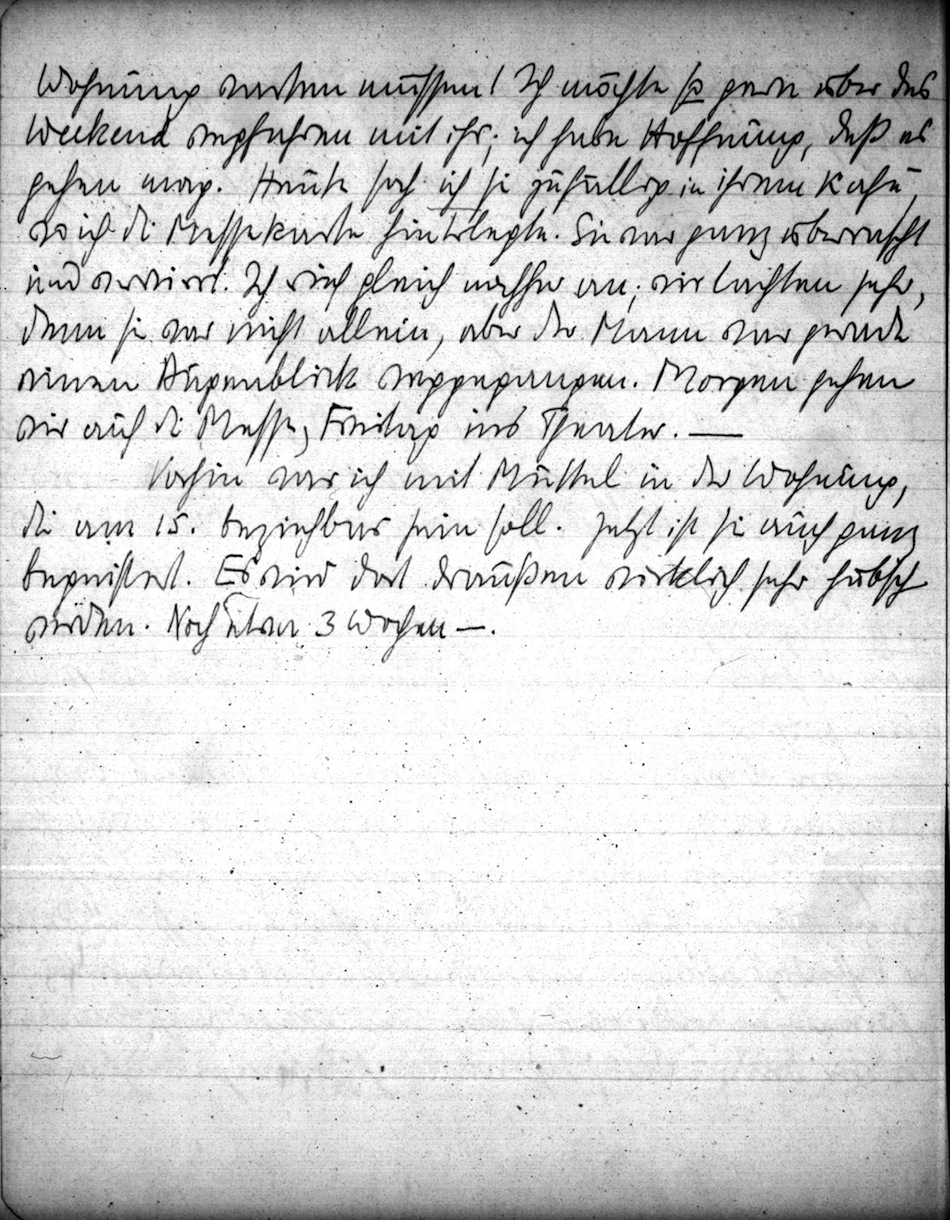 Wohnung warten müssen! Ich möchte so gern über das
Weekend wegfahren mit ihr; ich habe Hoffnung, daß es
gehen mag. Heute sah ich sie zufällig in ihrem Kafé,
wo ich die Messekarte hinterlegte. Sie war ganz überrascht
und verwirrt. Ich rief gleich nachher an; wir lachten sehr,
denn sie war nicht allein, aber der Mann war gerade
einen Augenblick weggegangen. Morgen gehen
wir auf die Messe, Freitag ins Theater. —
Vorhin war ich mit Muttel in der Wohnung,
die am 15. beziehbar sein soll. Jetzt ist sie auch ganz
begeistert. Es wird dort draußen wirklich sehr hübsch
werden. Noch etwa 3 Wochen —.